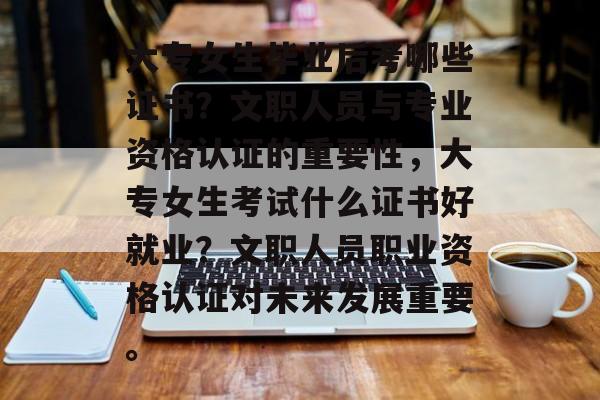 大专女生毕业后考哪些
证书？文职人员与专业
资格认证的重要性，大
专女生考试什么证书好
就业？文职人员职业资
格认证对未来发展重要
。